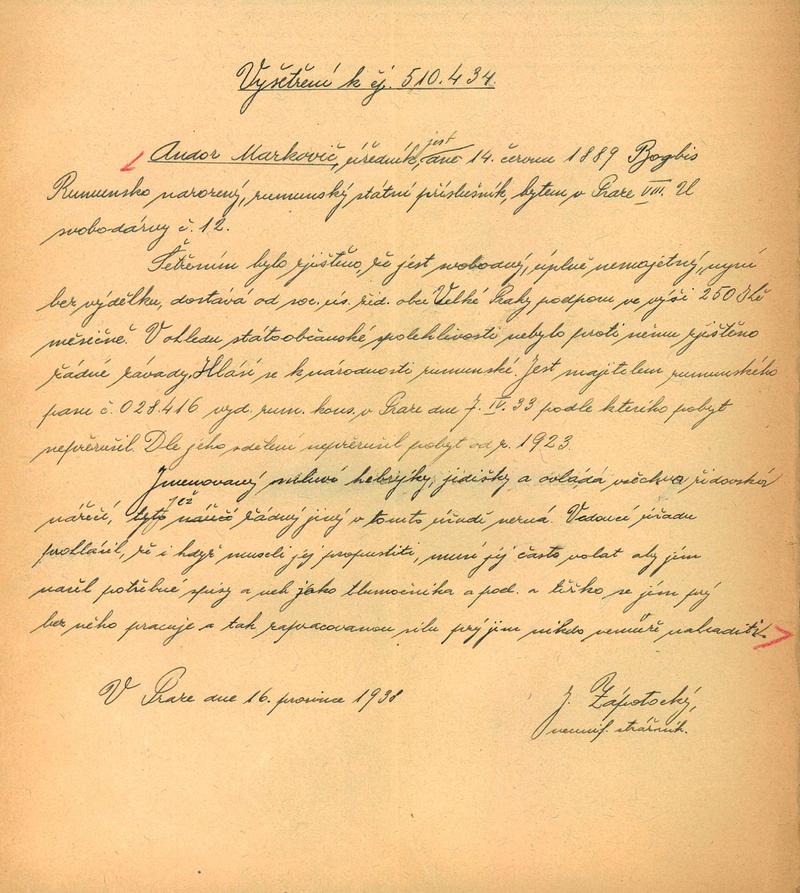 Vyšetření k čj. 510.434.
jest
Andor Markovič, úředník, dne 14. června 1889 Bogbis
Rumunsko narozený, rumunský státní příslušník, bytem v Praze VIII. U
svobodárny č. 12.
Šetřením bylo zjištěno, že jest svobodný, úplně nemajetný, nyní
bez výdělku, dostává od soc. ús. žid. obce Velké Prahy podporu ve výši 250 Kč
měsíčně. V ohledu státoobčanské spolehlivosti nebylo proti němu zjištěno
žádné závady. Hlásí se k národnosti rumunské. Jest majitelem rumunského
pasu č. 028.416 vyd. rum. kons. v Praze dne 7. IV. 33 podle kterého pobyt
nepřerušil. Dle jeho sdělení nepřerušil pobyt od r. 1923.
Jmenovaný mluví hebrejsky, jidišky a ovládá všechna židovská
jež
nářečí, tyto nářečí žádný jiný v tomto úřadě nezná. Vedoucí úřadu
prohlásil, že i když museli jej propustiti, musí jej často volat aby jim
našel potřebné spisy a neb jako tlumočníka a pod. a těžko se jim prý
bez něho pracuje a tak zapracovanou sílu prý jim nikdo nemůže nahraditi.
V Praze dne 16. prosince 1938
J. Zápotocký,
neunif. strážník.